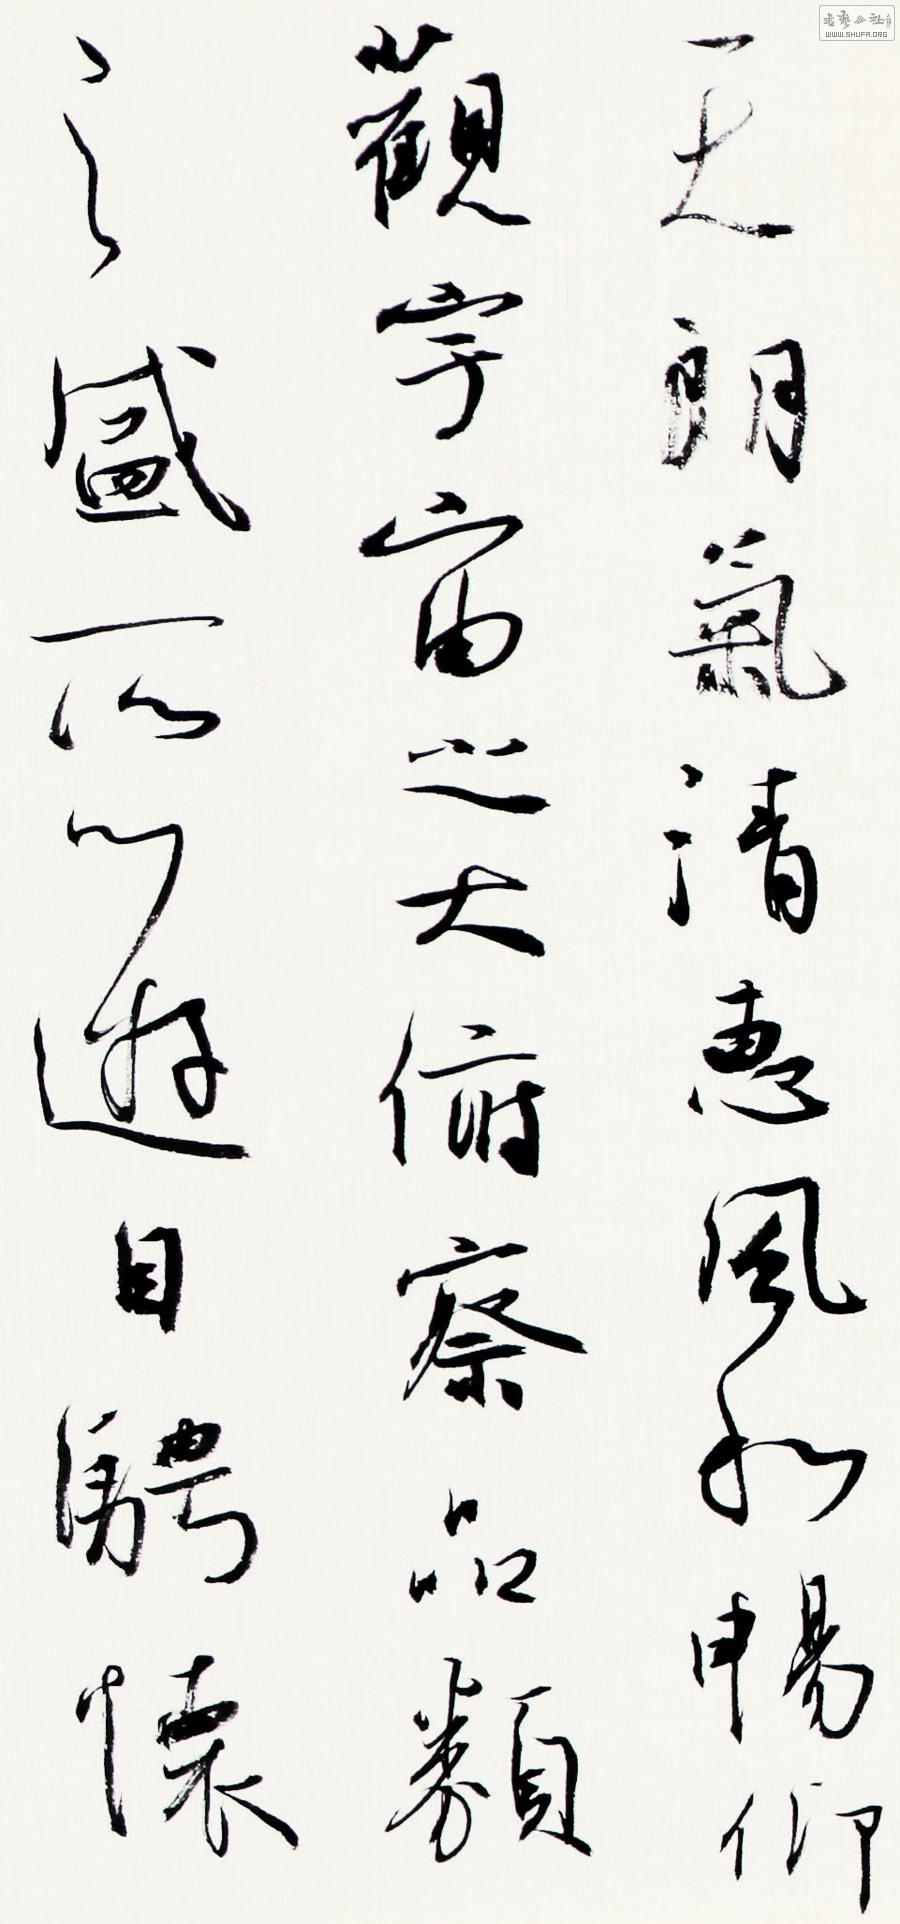 天朗氣清惠風和暢仰
觀宇宙之大俯察品類
之盛所以遊目騁懷
WWW.SHUFA.ORG